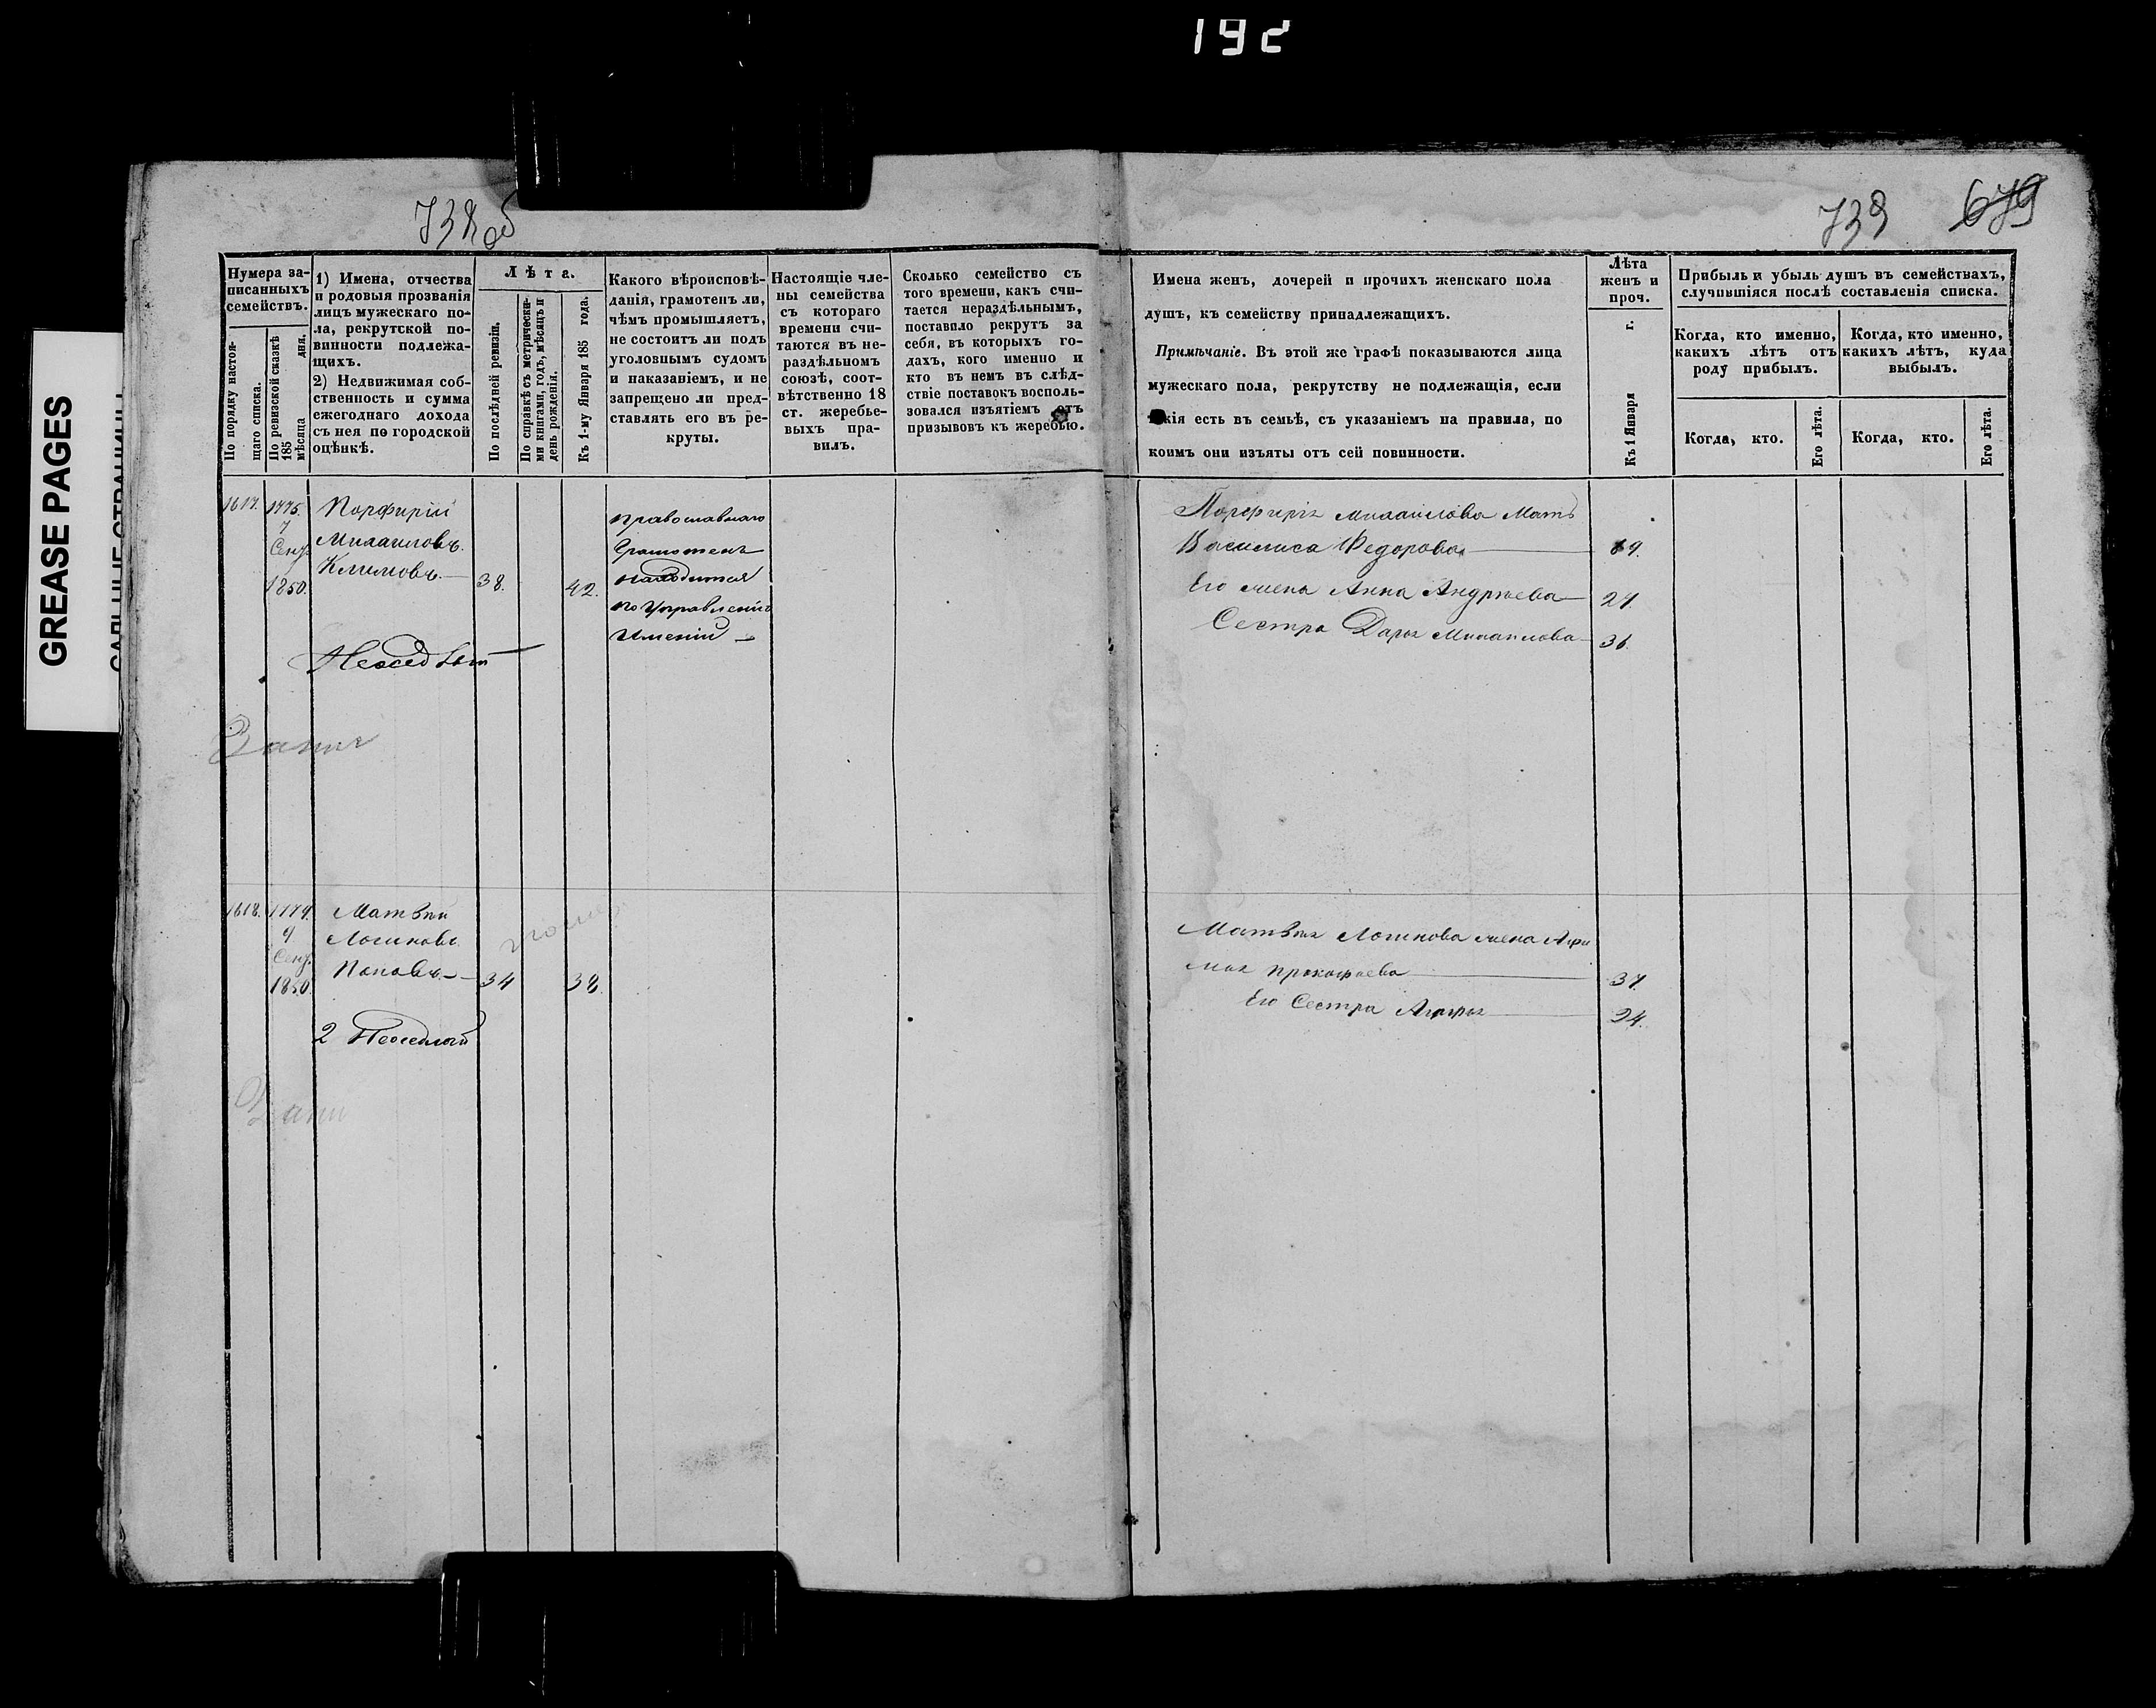 192
GREASE PAGES
738 об
739
679
Нумера за-
писанныхъ
семействъ.
По порядку настоя-
щаго списка.
По ревизской сказкѣ
185
дня,
мѣсяца
1) Имена, отчества
и родовыя прозванія
лицъ мужескаго по-
ла, рекрутской по-
винности подлежа-
щихъ.
2) Недвижимая соб-
ственность и сумма
ежегоднаго дохода
съ нея по городской
оцѣнкѣ.
Лѣта.
По послѣдней ревизіи.
По справкѣ съ метрически-
ми книгами, годъ, мѣсяцъ и
день рожденія.
Къ 1-му Января 185 года.
Какого вѣроисповѣ-
данія, грамотенъ ли,
чѣмъ промышляетъ,
не состоитъ ли подъ
уголовнымъ судомъ
и наказаніемъ, и не
запрещено ли пред-
ставлять его въ ре-
круты.
Настоящіе чле-
ны семейства
съ котораго
времени счи-
таются въ не-
раздѣльномъ
союзѣ, соот-
вѣтственно 18
ст. жеребье-
выхъ пра-
вилъ.
Сколько семейство съ
того времени, какъ счи-
тается нераздѣльнымъ,
поставило рекрутъ за
себя, въ которыхъ го-
дахъ, кого именно и
кто въ немъ въ слѣд-
ствіе поставокъ восполь-
зовался изъятіемъ отъ
призывовъ къ жеребью.
Имена женъ, дочерей и прочихъ женскаго пола
душъ, къ семейству принадлежащихъ.
Примѣчаніе. Въ этой же графѣ показываются лица
мужескаго пола, рекрутству не подлежащія, если
кія есть въ семьѣ, съ указаніемъ на правила, по
коимъ они изъяты отъ сей повинности.
Лѣта
женъ и
проч.
Къ 1 Января г.
Прибыль и убыль душъ въ семействахъ,
случившіяся послѣ составленія списка.
Когда, кто именно,
какихъ лѣтъ отъ
роду прибылъ.
Когда, кто именно,
какихъ лѣтъ, куда
выбылъ.
Когда, кто.
Его лѣта.
Когда, кто.
Его лѣта.
1617.
7
1850.
Порфирій
Михаиловъ
Климовъ
38.
42.
православнаго
Грамотенъ
находится
по Управленію
Имѣній
Порфирія Михаилова Мать
Василиса Федорова
69.
Его жена Анна Андреева
27.
Сестра Дарья Михаилова
36.
1618.
1850.
Матвѣй
Логиновъ
Поповъ
34
38.
2 Неоседлой
Матвѣя Логинова жена Афи
мья Прокофьева
37.
Его Сестра
24.